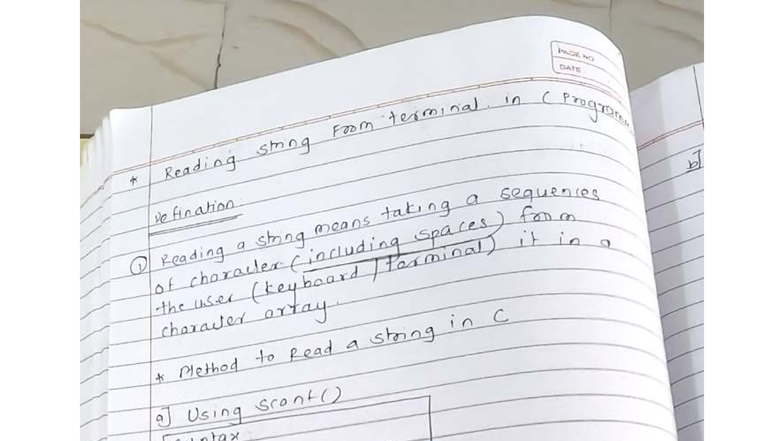 PAGE NO
DATE
* Reading string From terminal. in C Program
Defination
① Reading a string means taking a sequences
of character (including spaces) from
the user (keyboard / tarminal) it in a
character array.
* Method to Read a string in C
a] Using scanf()
b]